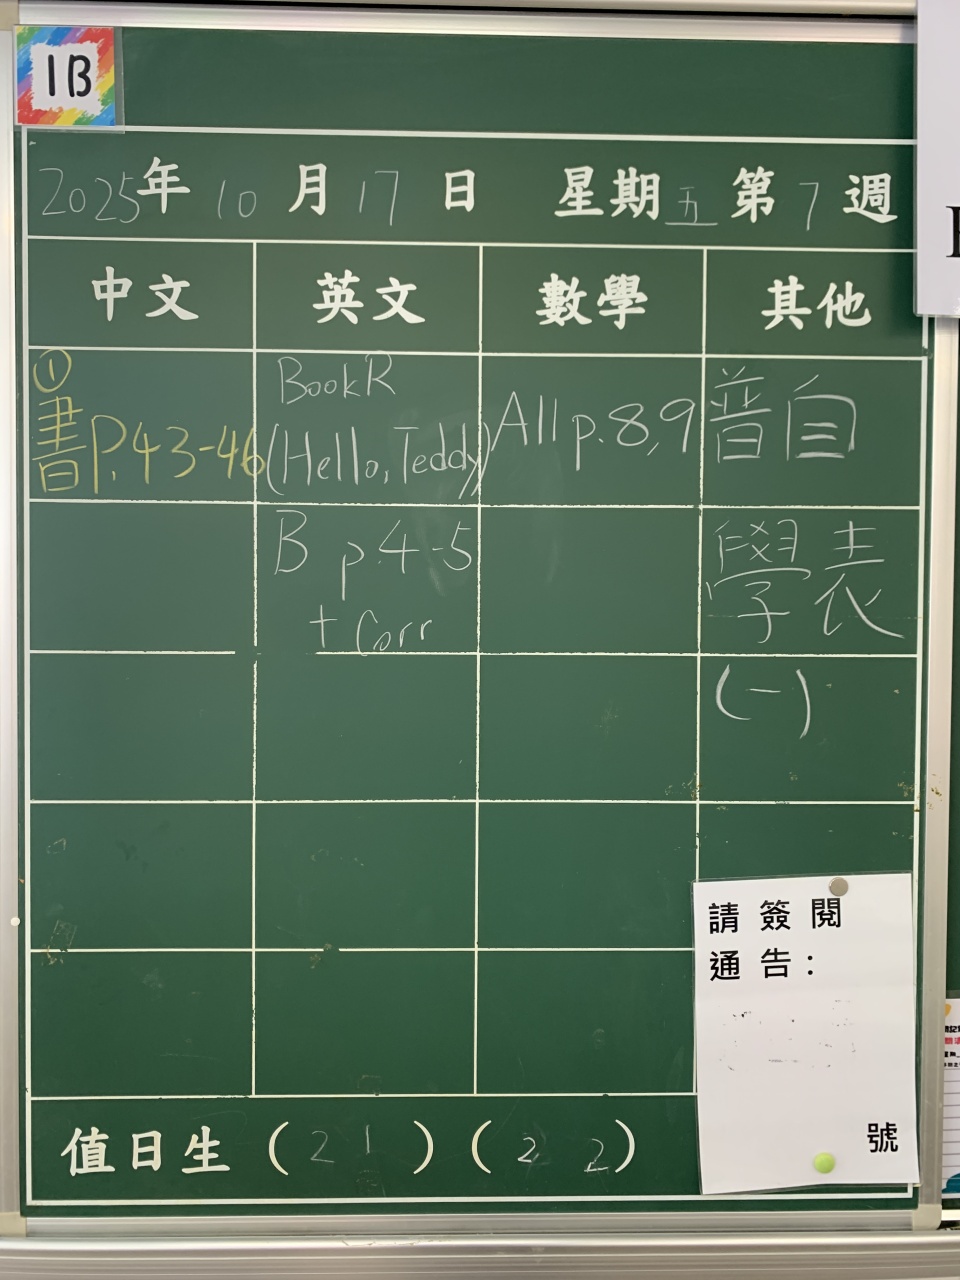 1B
2025年 10月 17日 星期五 第7週
中文 英文 數學 其他
①
書P.43-46
BookR
(Hello, Teddy)
All p.8,9
普自
B p.4-5
+ Corr
學表
(一)
請簽閱
通告：
號
值日生 (21) (22)